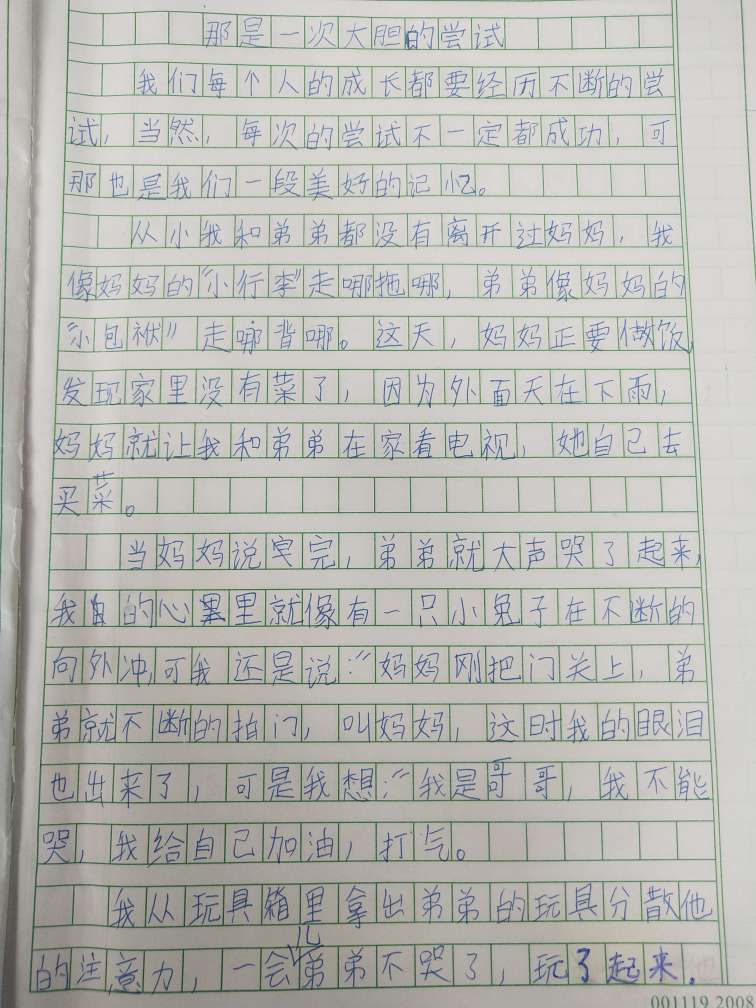 那是一次大胆的尝试
我们每个人的成长都要经历不断的尝
试，当然，每次的尝试不一定都成功，可
那也是我们一段美好的记忆。
从小我和弟弟都没有离开过妈妈，我
像妈妈的“小行李”走哪拖哪，弟弟像妈妈的
“小包袱”走哪背哪。这天，妈妈正要做饭，
发现家里没有菜了，因为外面天在下雨，
妈妈就让我和弟弟在家看电视，她自己去
买菜。
当妈妈说完，弟弟就大声哭了起来，
我的心里就像有一只小兔子在不断的
向外冲，可我还是说：“妈妈刚把门关上，弟
弟就不断的拍门，叫妈妈，这时我的眼泪
也出来了，可是我想：“我是哥哥，我不能
哭，我给自己加油，打气。
我从玩具箱里拿出弟弟的玩具分散他
的注意力，一会儿弟弟不哭了，玩了起来．
001119.2008